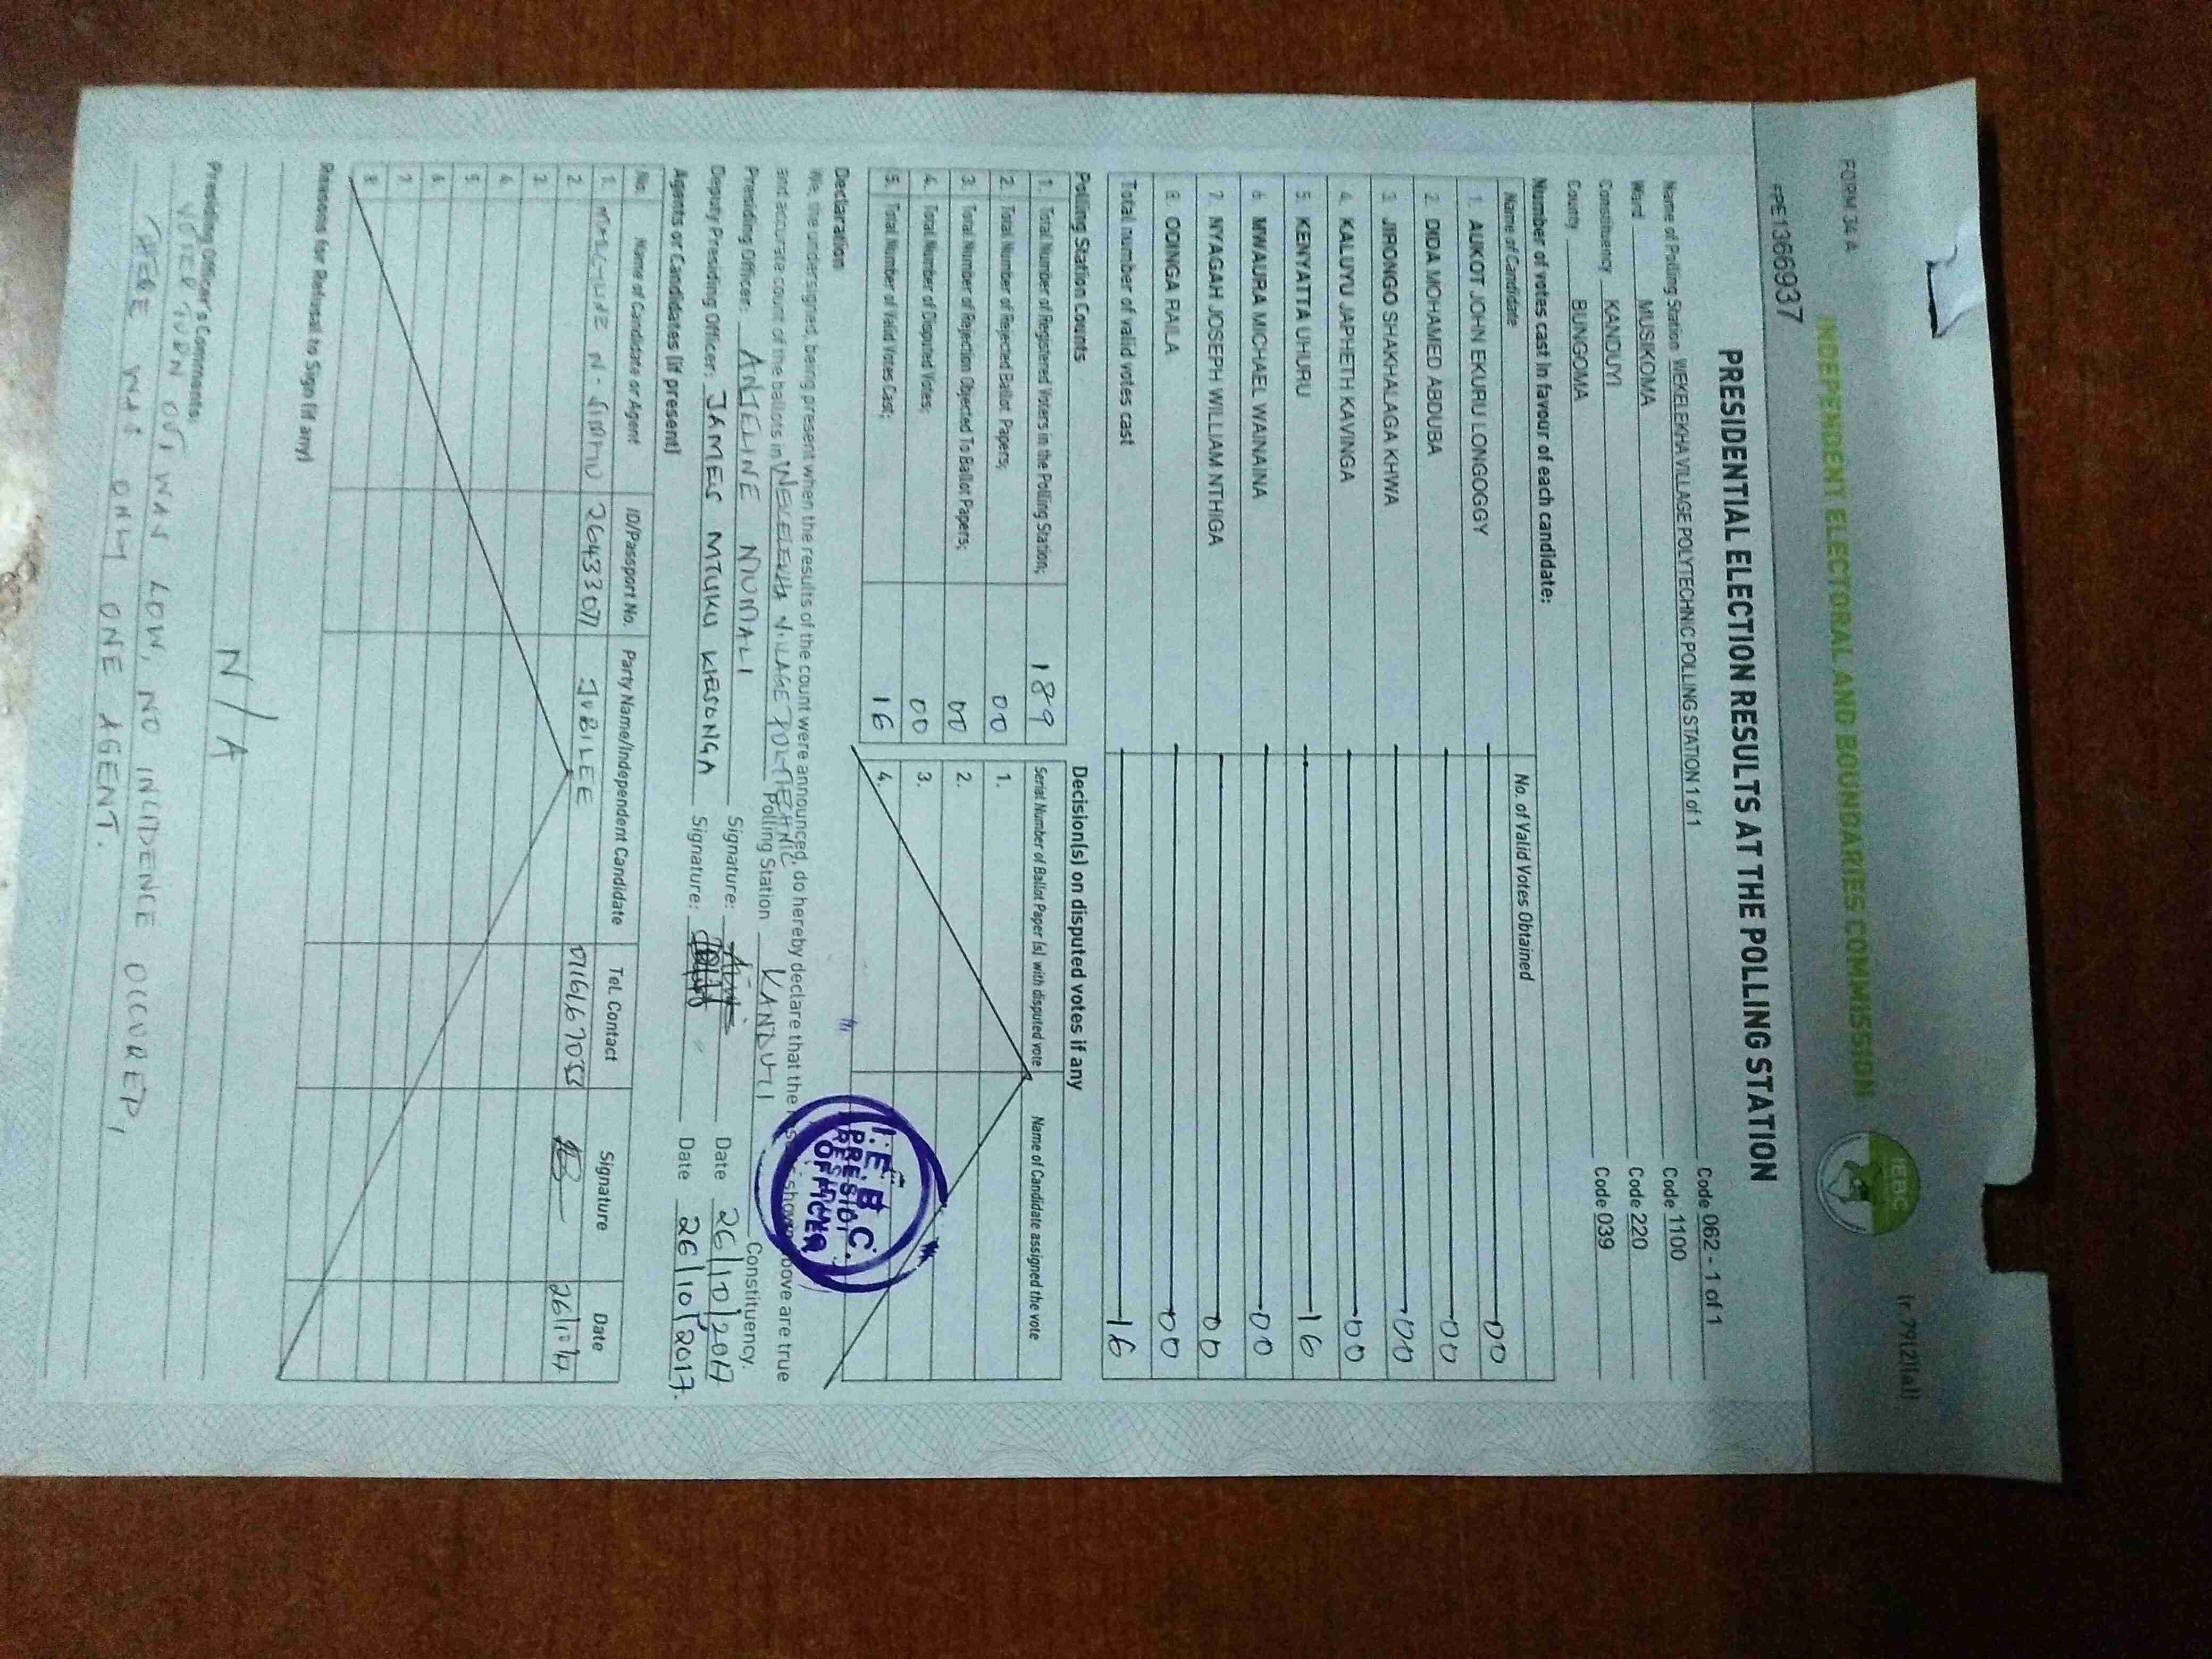 FORM 34 A
(r.79(2)(a))
INDEPENDENT ELECTORAL AND BOUNDARIES COMMISSION
IEBC
PE1366937
PRESIDENTIAL ELECTION RESULTS AT THE POLLING STATION
Name of Polling Station WEKELEKHA VILLAGE POLYTECHNIC POLLING STATION 1 of 1 Code 062 - 1 of 1
Ward MUSIKOMA Code 1100
Constituency KANDUYI Code 220
County BUNGOMA Code 039
Number of votes cast in favour of each candidate:
Name of Candidate No. of Valid Votes Obtained
1. AUKOT JOHN EKURU LONGOGGY 00
2. DIDA MOHAMED ABDUBA 00
3. JIRONGO SHAKHALAGA KHWA 00
4. KALUYU JAPHETH KAVINGA 00
5. KENYATTA UHURU 16
6. MWAURA MICHAEL WAINAINA 00
7. NYAGAH JOSEPH WILLIAM NTHIGA 00
8. ODINGA RAILA 00
Total number of valid votes cast 16
Polling Station Counts
1. Total Number of Registered Voters in the Polling Station; 189
2. Total Number of Rejected Ballot Papers; 00
3. Total Number of Rejection Objected To Ballot Papers; 00
4. Total Number of Disputed Votes; 00
5. Total Number of Valid Votes Cast; 16
Decision(s) on disputed votes if any
Serial Number of Ballot Paper (s) with disputed vote Name of Candidate assigned the vote
1.
2.
3.
4.
Declaration
We, the undersigned, being present when the results of the count were announced, do hereby declare that the shown above are true
and accurate count of the ballots in WEKELEKHA VILLAGE POLYTECHNIC Polling Station KANDUYI Constituency.
Presiding Officer: Signature: Date 26/10/2017
Deputy Presiding Officer: JAMES MTUKU Signature: Date 26/10/2017.
I.E.B.C.
PRESIDING
OFFICER
Agents or Candidates (if present)
No. Name of Candidate or Agent ID/Passport No. Party Name/Independent Candidate Tel. Contact Signature Date
1. JUBILEE 26/10/17
2.
3.
4.
5.
6.
7.
8.
Reasons for Refusal to Sign (if any)
N/A
Presiding Officer's Comments:
VOTER TURN OUT WAS LOW, NO INCIDENCE OCCURED,
THERE WAS ONLY ONE AGENT.